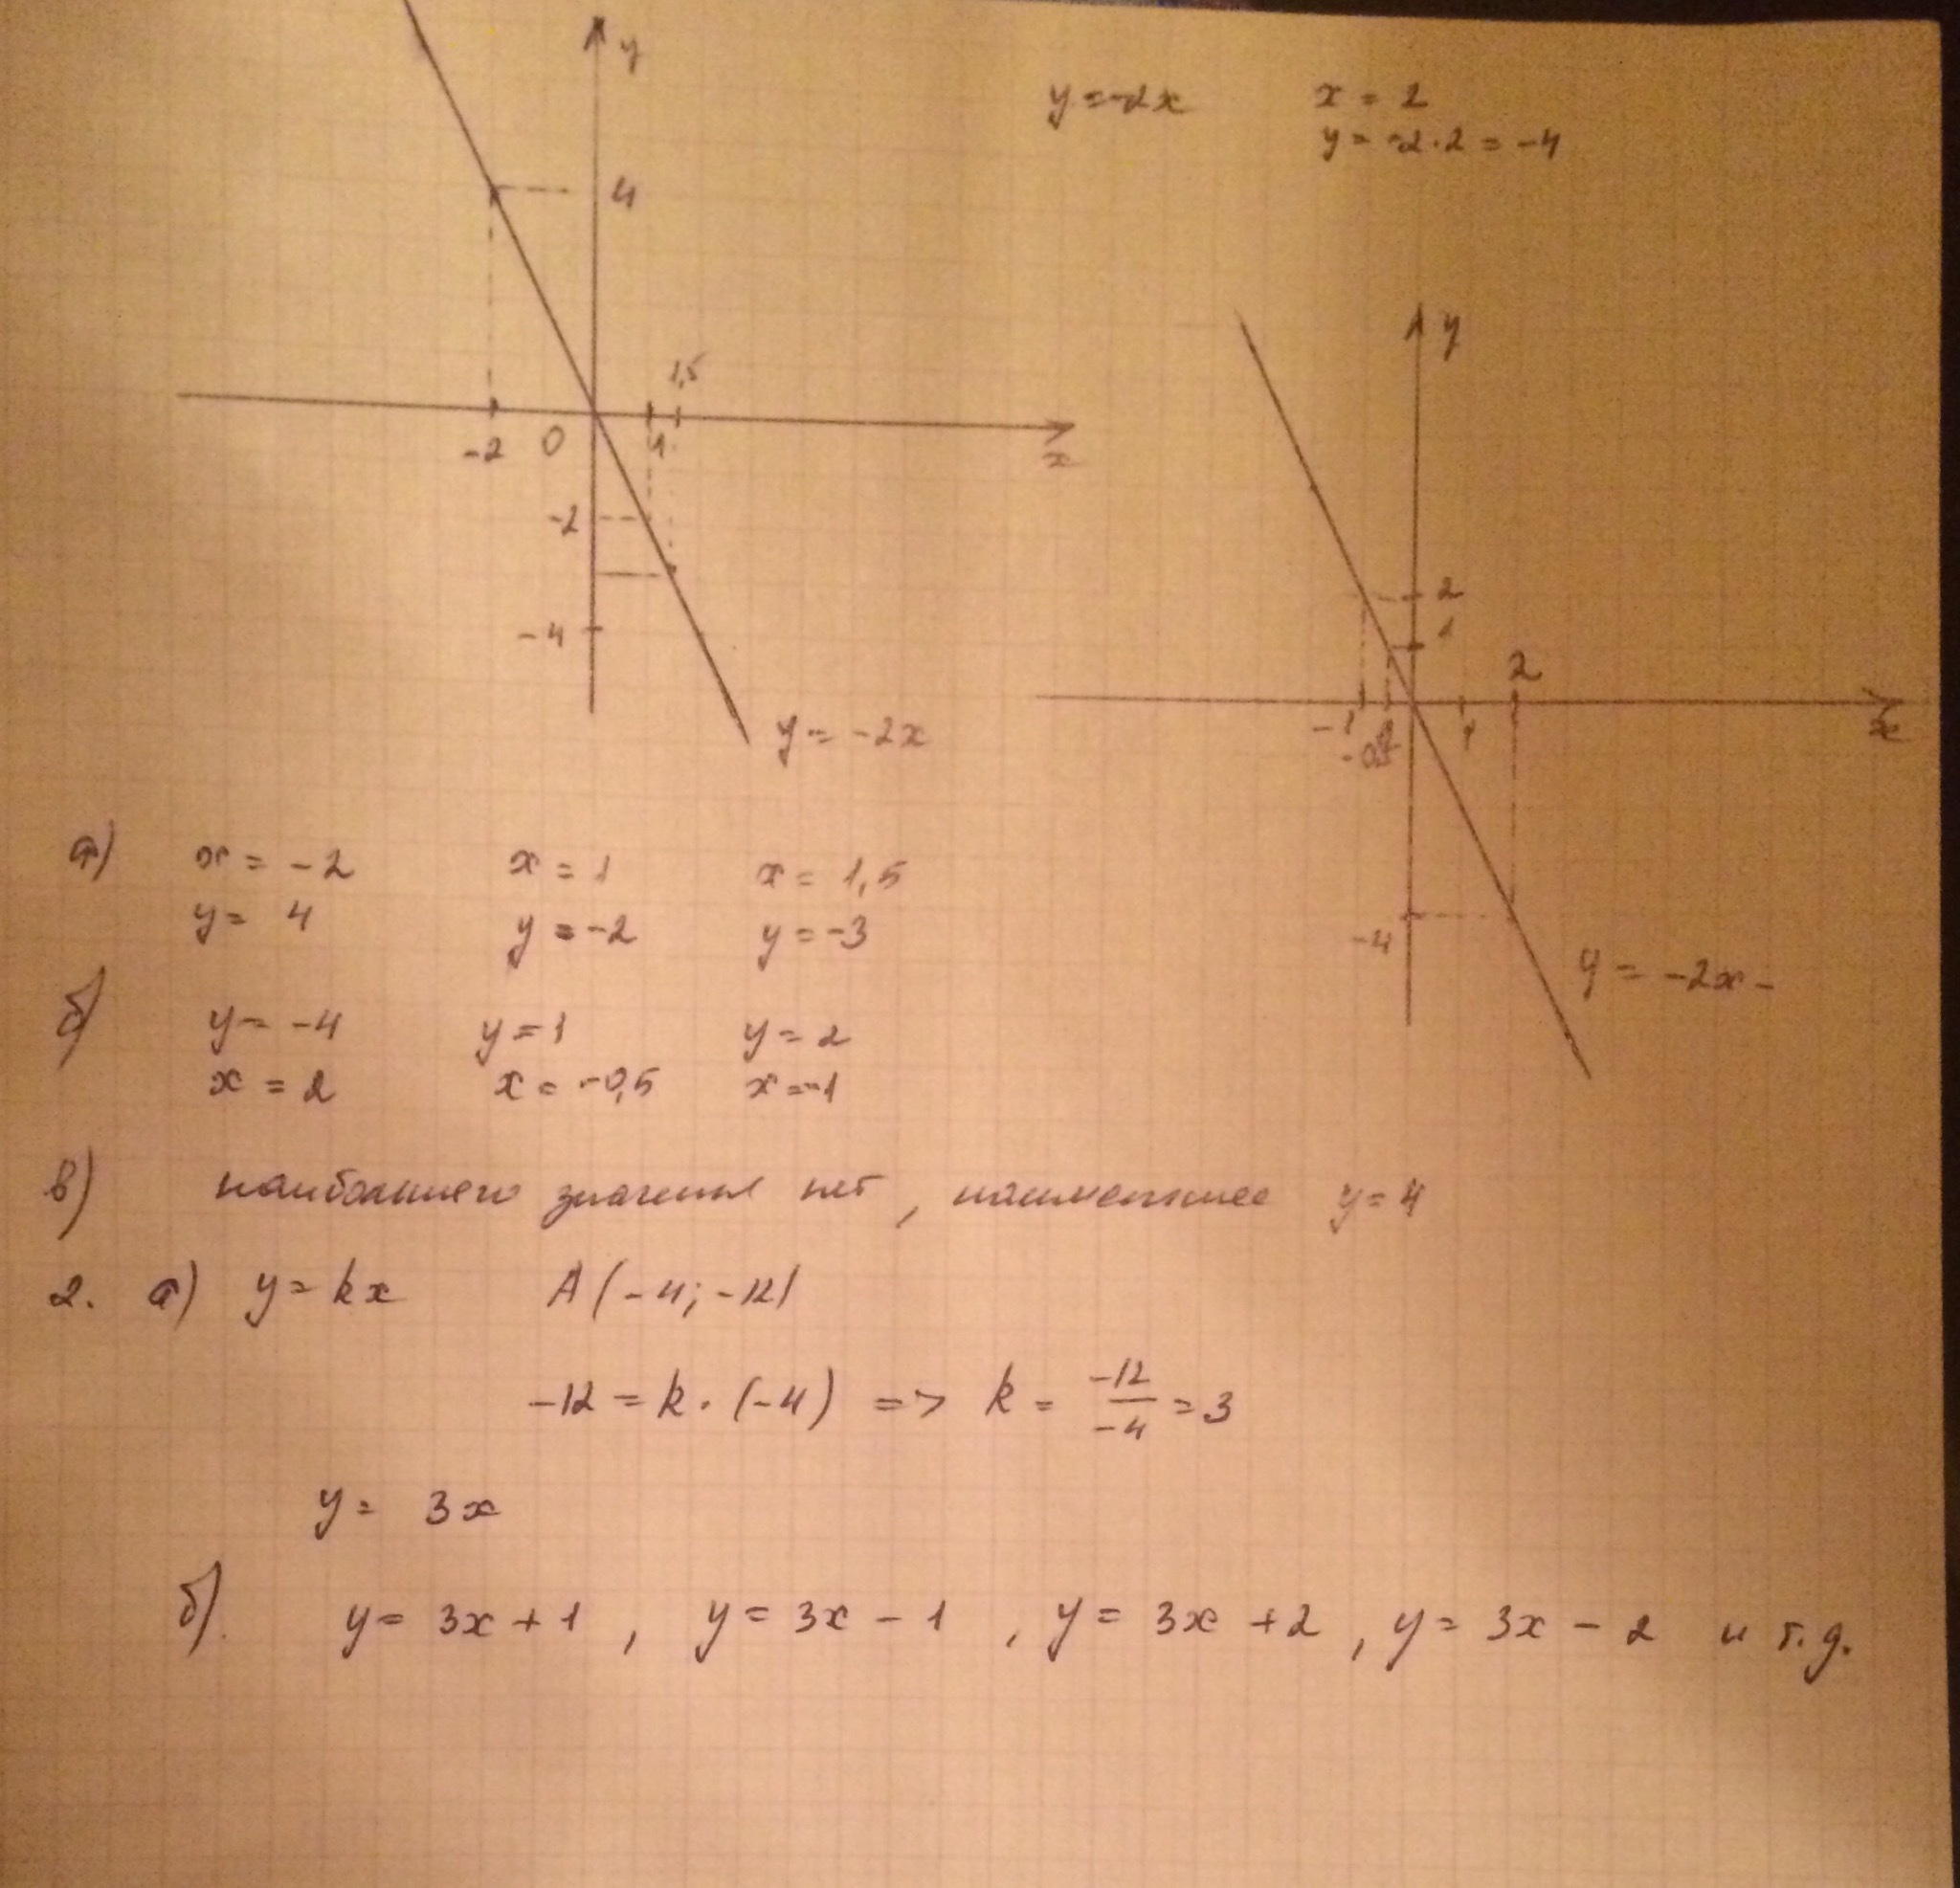 y
y = -2x
x = 2
y = -2·2 = -4
4
1,5
-2
0
1
x
-2
-4
y = -2x
y
2
1
2
-1
1
x
-4
y = -2x -
а)
x = -2
x = 1
x = 1,5
y = 4
y = -2
y = -3
б)
y = -4
y = 1
y = 2
x = 2
x = -0,5
x = -1
в) наибольшего значения нет, наименьшее y = 4
2. а) y = kx A(-4; -12)
-12 = k · (-4) => k = -12/-4 = 3
y = 3x
б) y = 3x + 1 , y = 3x - 1 , y = 3x + 2 , y = 3x - 2 и т.д.